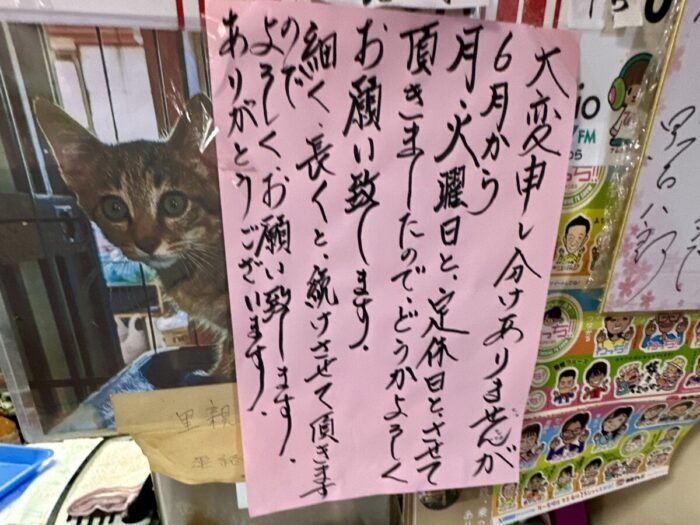 大変申し分けありませんが
6月から
月・火曜日と、定休日と、させて
頂きましたので、どうかよろしく
お願い致します。
細く、長くと、続けさせて頂きます
のでよろしくお願い致します。
ありがとうございます。
里親
io
FM